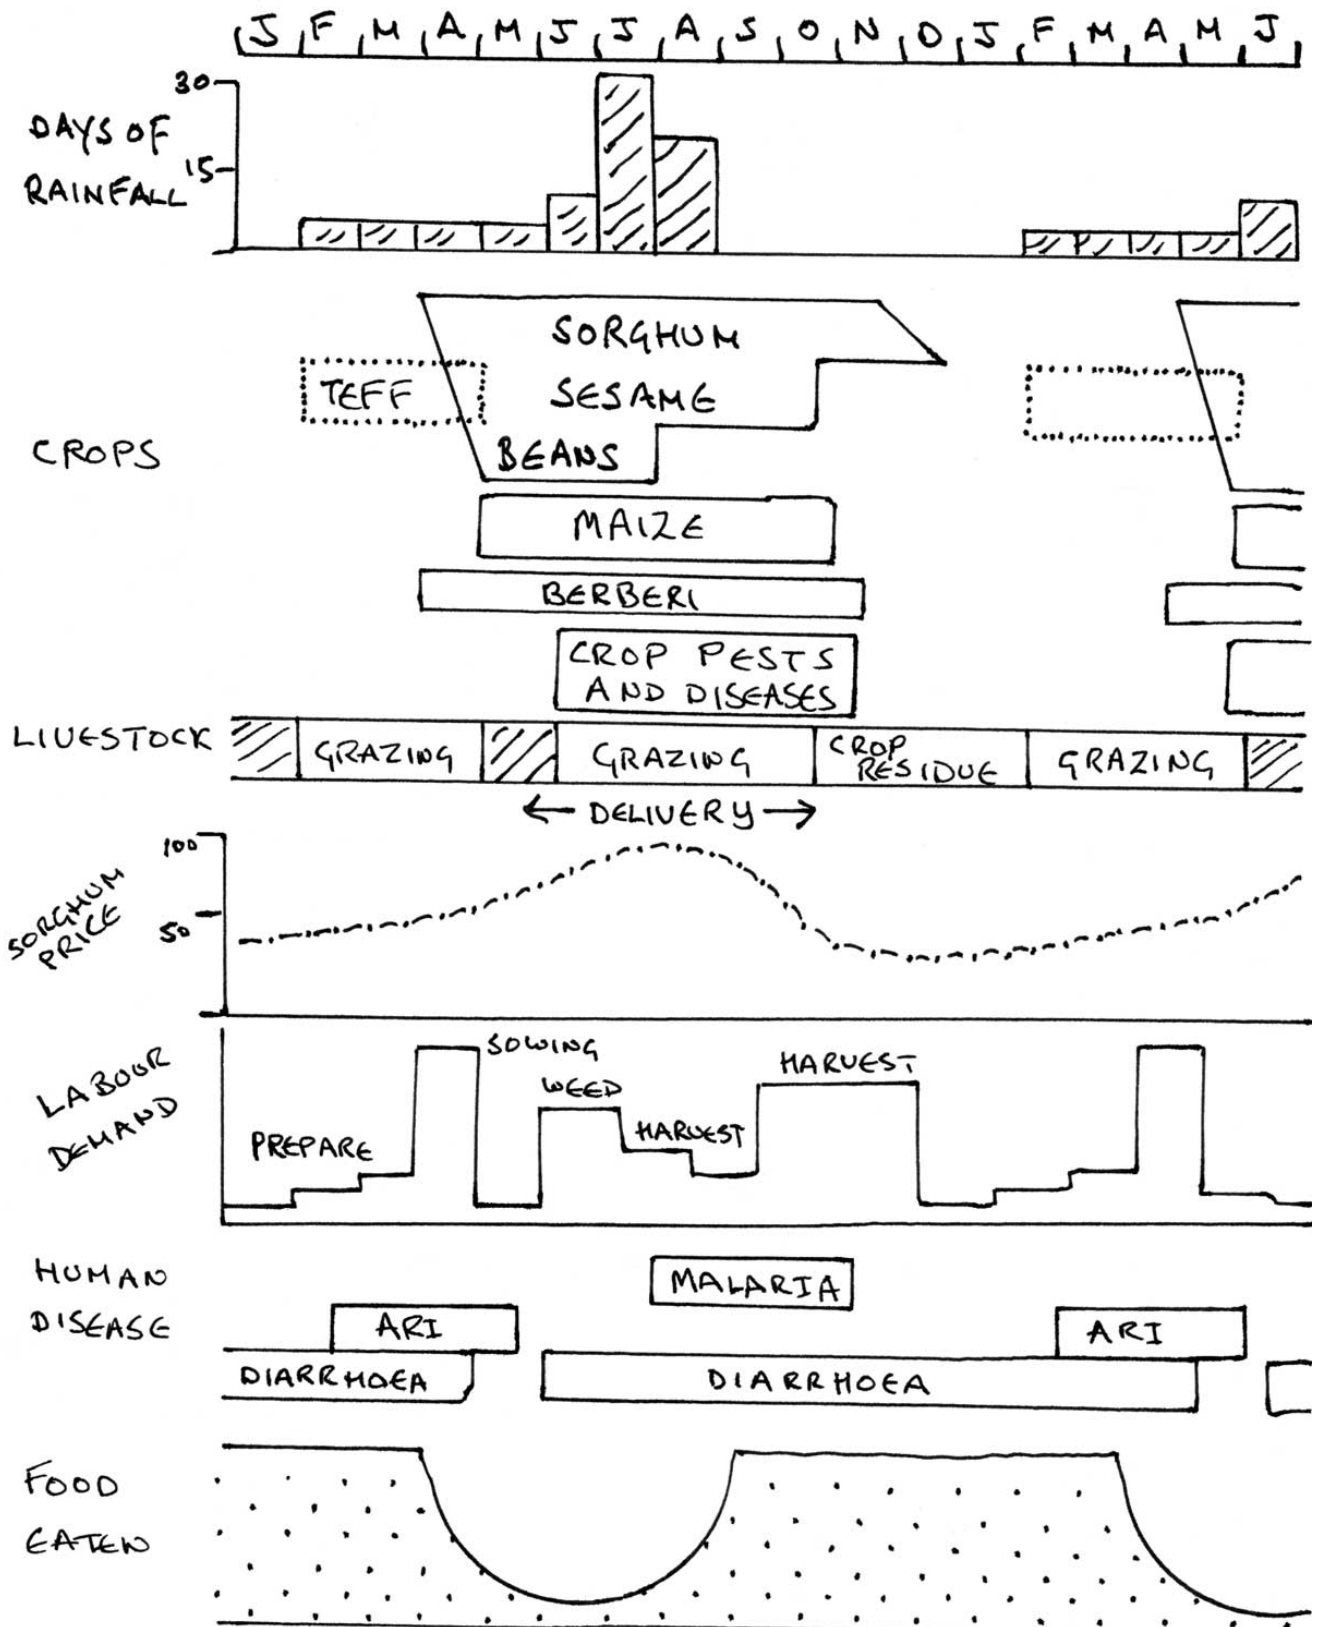 J F M A M J J A S O N D J F M A M J
30
DAYS OF
15
RAINFALL
SORGHUM
TEFF SESAME
CROPS BEANS
MAIZE
BERBERI
CROP PESTS
AND DISEASES
LIVESTOCK GRAZING GRAZING CROP RESIDUE GRAZING
← DELIVERY →
100
SORGHUM
PRICE
50
LABOUR
DEMAND
SOWING
WEED
HARVEST
HARVEST
PREPARE
HUMAN
DISEASE
MALARIA
ARI ARI
DIARRHOEA DIARRHOEA
FOOD
EATEN